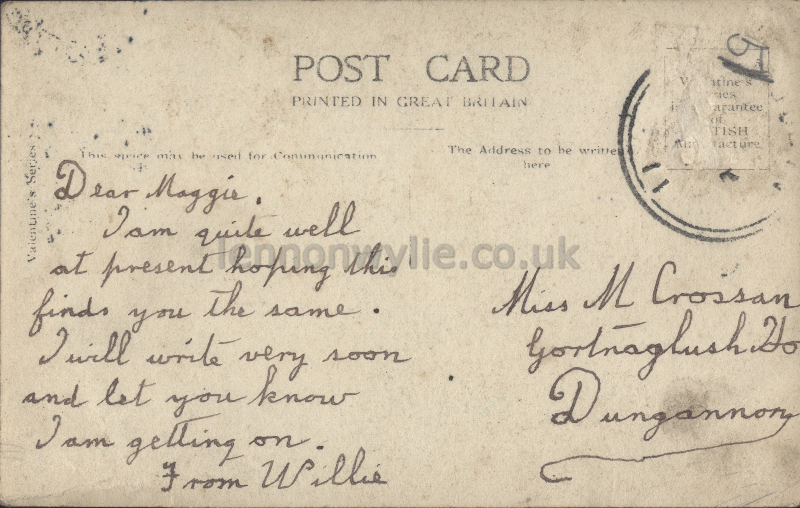 POST CARD
PRINTED IN GREAT BRITAIN
This space may be used for Communication
The Address to be written
here
Valentine's Series
Valentine's
Series
Guarantee
of
BRITISH
Manufacture
51
11
Dear Maggie.
I am quite well
at present hoping this
finds you the same.
I will write very soon
and let you know
I am getting on.
From Willie
Miss M Crossan
Gortnaglush Ho
Dungannon
lennonwylie.co.uk